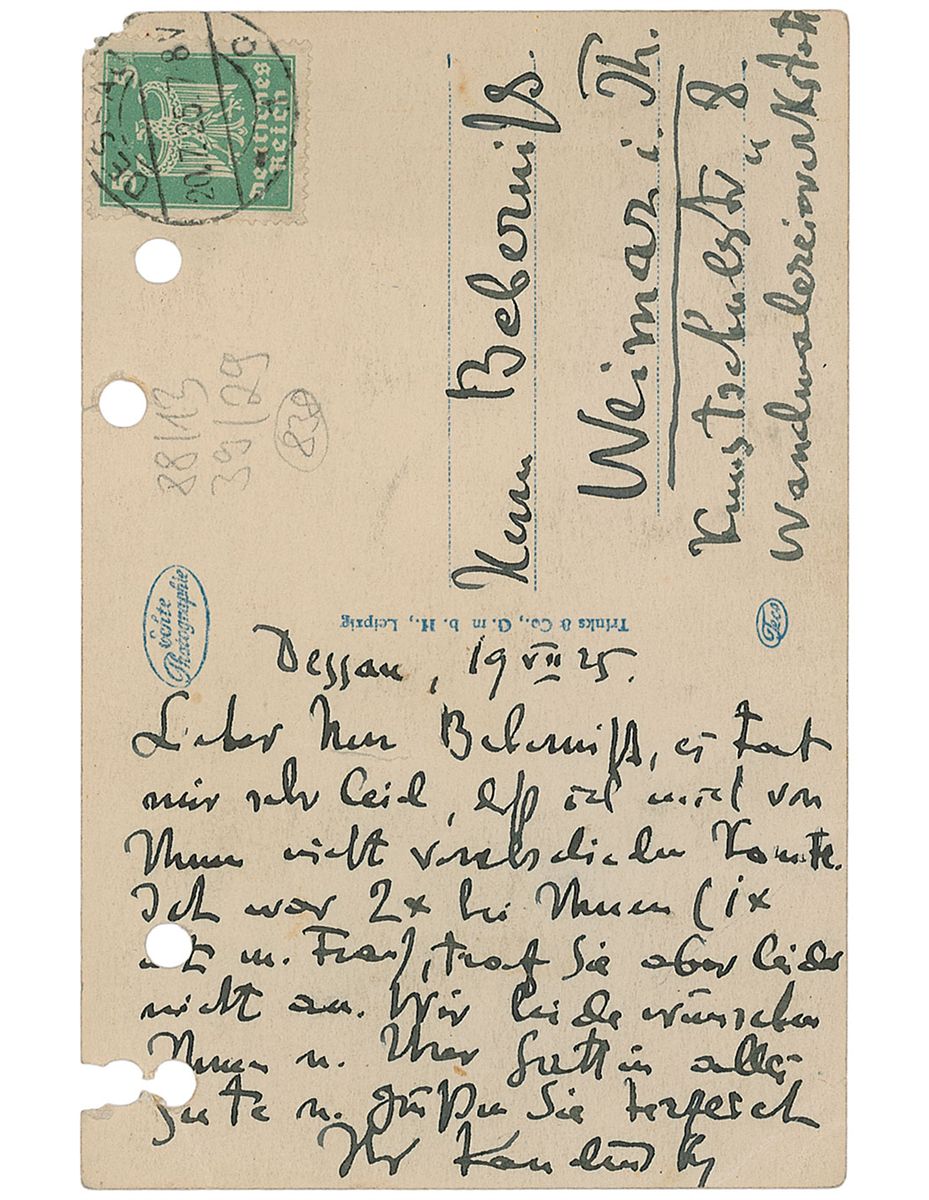 DESSAU
20.7.25. 7-8V
5 Deutsches Reich 5
88/13
39/29
830
Herrn Beberniß.
Weimar i. Th.
Kunstschulstr 8
Wandmalereiwerkstatt
Echte Photographie
Trinks & Co., G. m. b. H., Leipzig
Teco
Dessau, 19 VII 25.
Lieber Herr Beberniß, es tat
mir sehr leid, daß ich mich von
Ihnen nicht verabschieden konnte.
Ich war 2x bei Ihnen (1x
mit m. Frau), traf Sie aber leider
nicht an. Wir beide wünschen
Ihnen u. Ihrer Gattin alles
Gute u. grüßen Sie herzlich
Ihr Kandinsky